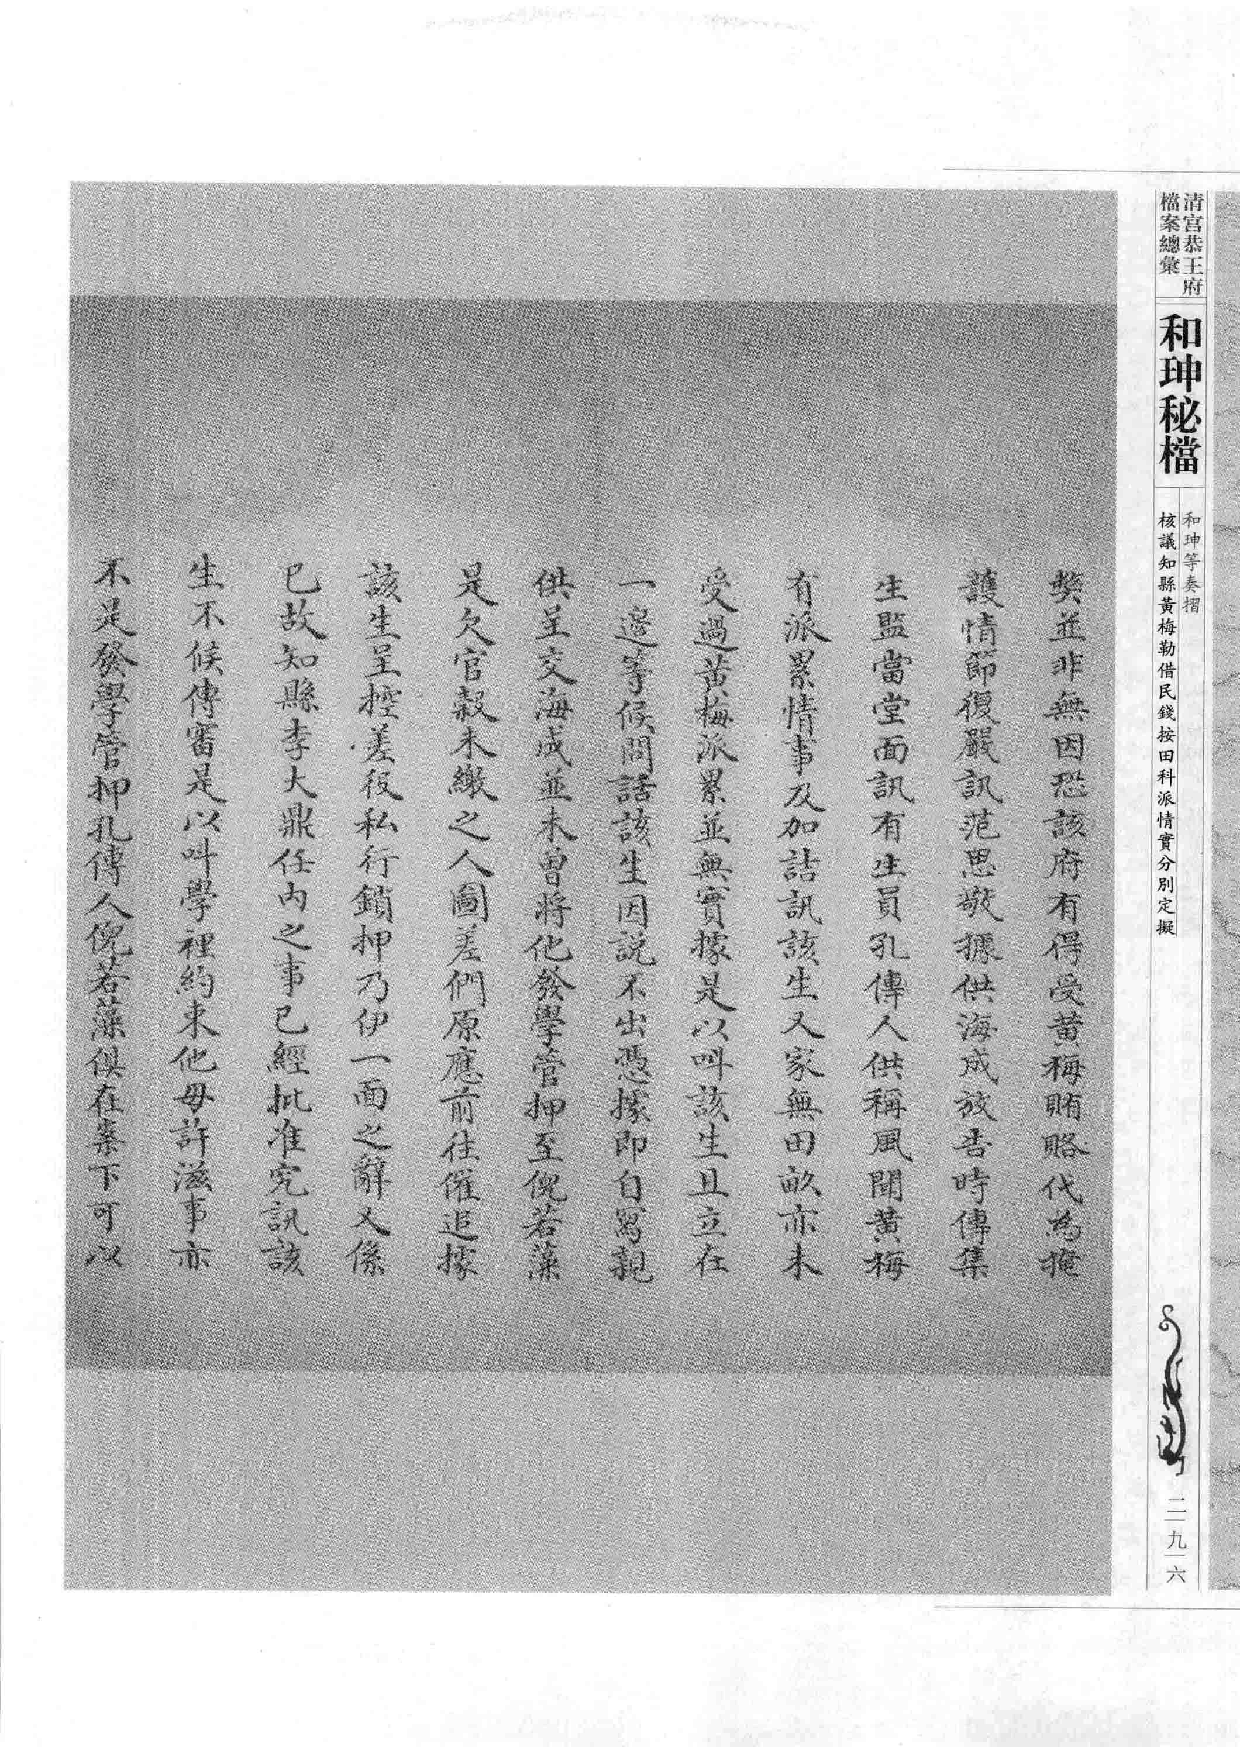 清宮恭王府
檔案總彙
和珅秘檔
和珅等奏摺
核議知縣黃梅勒借民錢按田科派情實分別定擬
二九六
獘並非無因恐該府有得受黃梅賄賂代為掩
護情節復嚴訊范思敬據供海成放告時傳集
生監當堂面訊有生員孔傳人供稱風聞黃梅
有派累情事及加詰訊該生又家無田畝亦未
受過黃梅派累並無實據是以叫該生且立在
一邊等候問話該生因說不出憑據即自寫親
供呈交海成並未曾將他發學管押至倪若藻
是欠官穀未繳之人圖差們原應前往催追據
該生呈控差役私行鎖押乃伊一面之辭又係
已故知縣李大鼎任內之事已經批准究訊該
生不候傳審是以叫學裡約束他毋許滋事亦
不是發學管押孔傳人倪若藻俱在案下可以